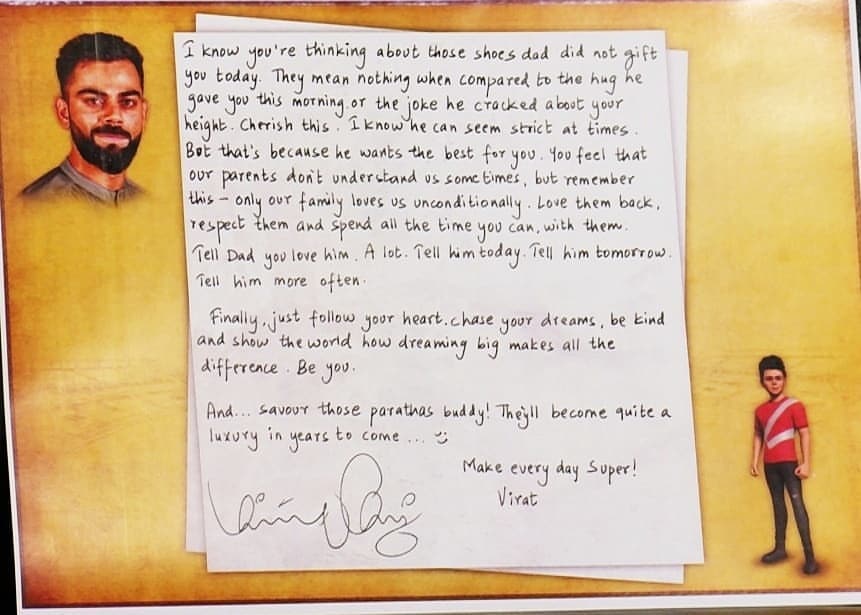 I know you're thinking about those shoes dad did not gift
you today. They mean nothing when compared to the hug he
gave you this morning or the joke he cracked about your
height. Cherish this. I know he can seem strict at times.
But that's because he wants the best for you. You feel that
our parents don't understand us sometimes, but remember
this – only our family loves us unconditionally. Love them back,
respect them and spend all the time you can, with them.
Tell Dad you love him. A lot. Tell him today. Tell him tomorrow.
Tell him more often.
Finally, just follow your heart, chase your dreams, be kind
and show the world how dreaming big makes all the
difference. Be you.
And... savour those parathas buddy! They'll become quite a
luxury in years to come ... :)
Make every day Super!
Virat